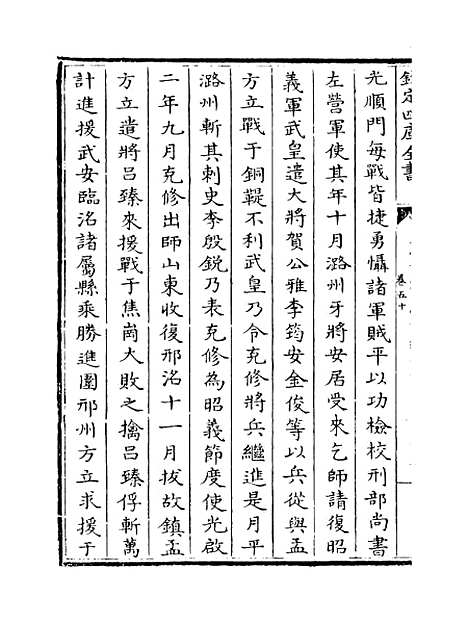 欽定四庫全書
卷五十
光順門每戰皆捷勇懾諸軍賊平以功檢校刑部尚書
左營軍使其年十月潞州牙將安居受來乞師請復昭
義軍武皇遣大將賀公雅李筠安金俊等以兵從與孟
方立戰于銅鞮不利武皇乃令克修將兵繼進是月平
潞州斬其刺史李殷銳乃表克修為昭義節度使光啟
二年九月克修出師山東收復邢洺十一月拔故鎮孟
方立遣將呂臻來援戰于焦崗大敗之擒呂臻俘斬萬
計進援武安臨洺諸屬縣乘勝進圍邢州方立求援于